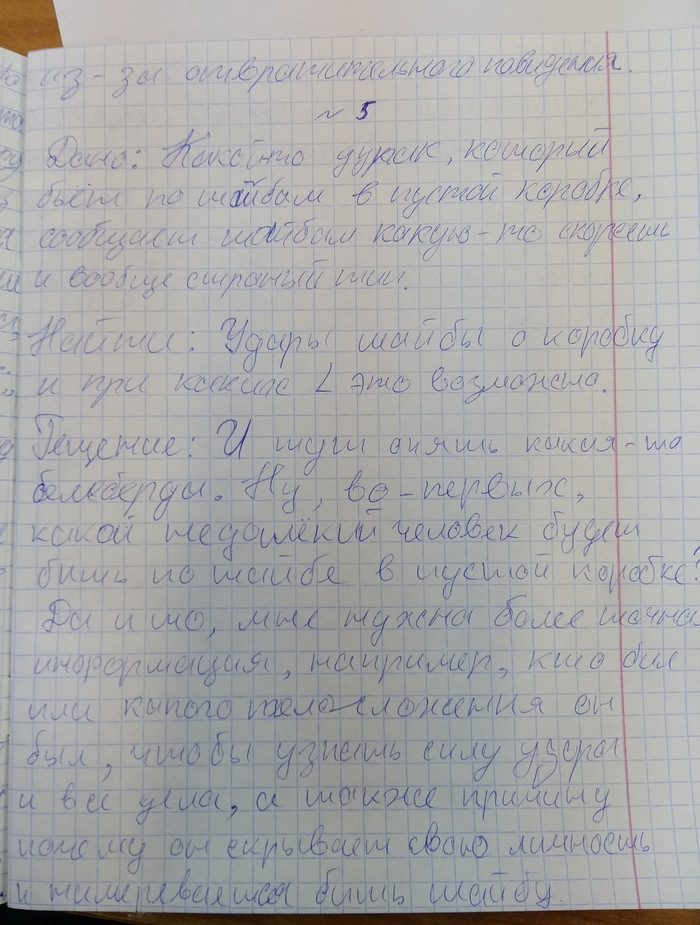 из-за отвратительного поведения.
~ 5
Дано: Какойто дурак, который
бьёт по шайбам в пустой коробке,
сообщает шайбам какую-то скорость
и вообще страный тип.
Найти: Удары шайбы о коробку
и при каких ∠ это возможно.
Решение: И тут опять какая-то
белеберды. Ну, во-первых,
какой недалёкий человек будет
бить по шайбе в пустой коробке?
Да и то, мне нужна более точная
информация, например, кто бил
или какого телосложения он
был, чтобы узнать силу удара
и все дела, а также причину
почему он скрывает свою личность
и намеревается бить шайбу.